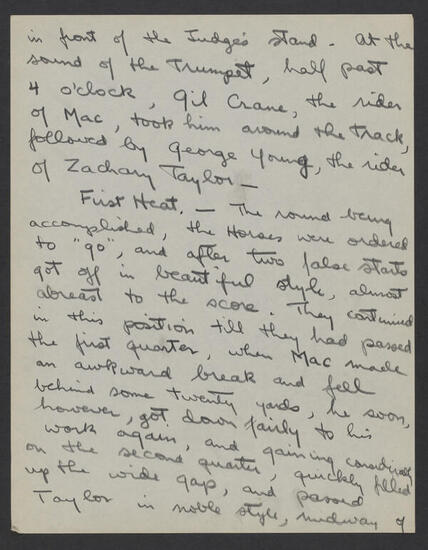 in front of the Judge's stand. At the
sound of the Trumpet, half past
4 o'clock, Gil Crane, the rider
of Mac, took him around the track,
followed by George Young, the rider
of Zachary Taylor —
First Heat. — The round being
accomplished, the Horses were ordered
to "go", and after two false starts
got off in beautiful style, almost
abreast to the score. They continued
in this position till they had passed
the first quarter, when Mac made
an awkward break and fell
behind some twenty yards, he soon,
however, got down fairly to his
work again, and gaining considerably
on the second quarter, quickly filled
up the wide gap, and passed
Taylor in noble style, midway of